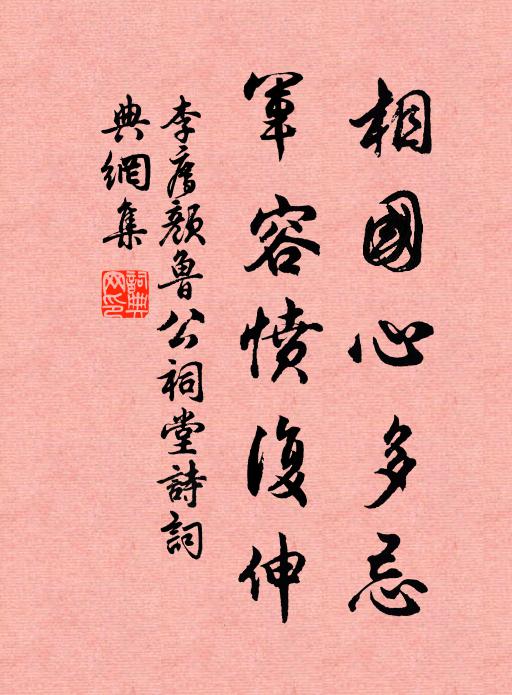 相國心多忌
軍容憤復伸
李膺顏魯公祠堂詩詞
典網集
詞典網印